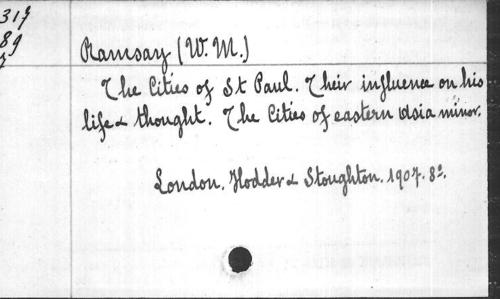 317
89
7
Ramsay (W. M.)
The Cities of St Paul. Their influence on his
life & thought. The Cities of eastern Asia minor.
London. Hodder & Stoughton. 1907. 8º.